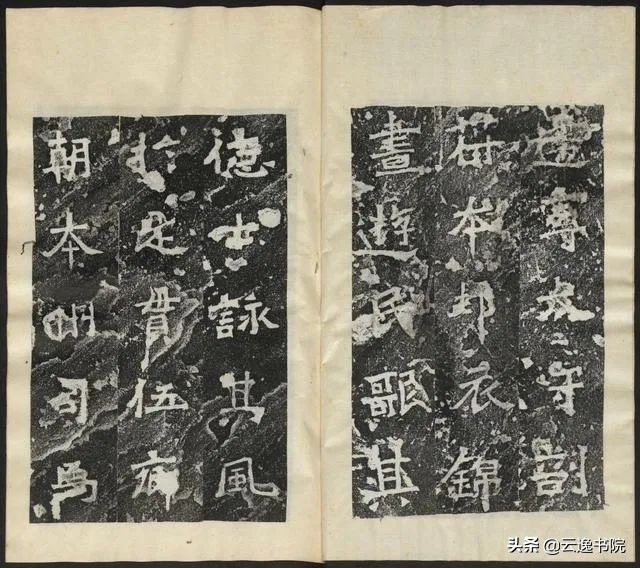 建寧太守剖
符本邦衣錦
晝遊民歌其
德士詠其風
於是貫伍鄉
朝本州司馬
头条 @云逸书院